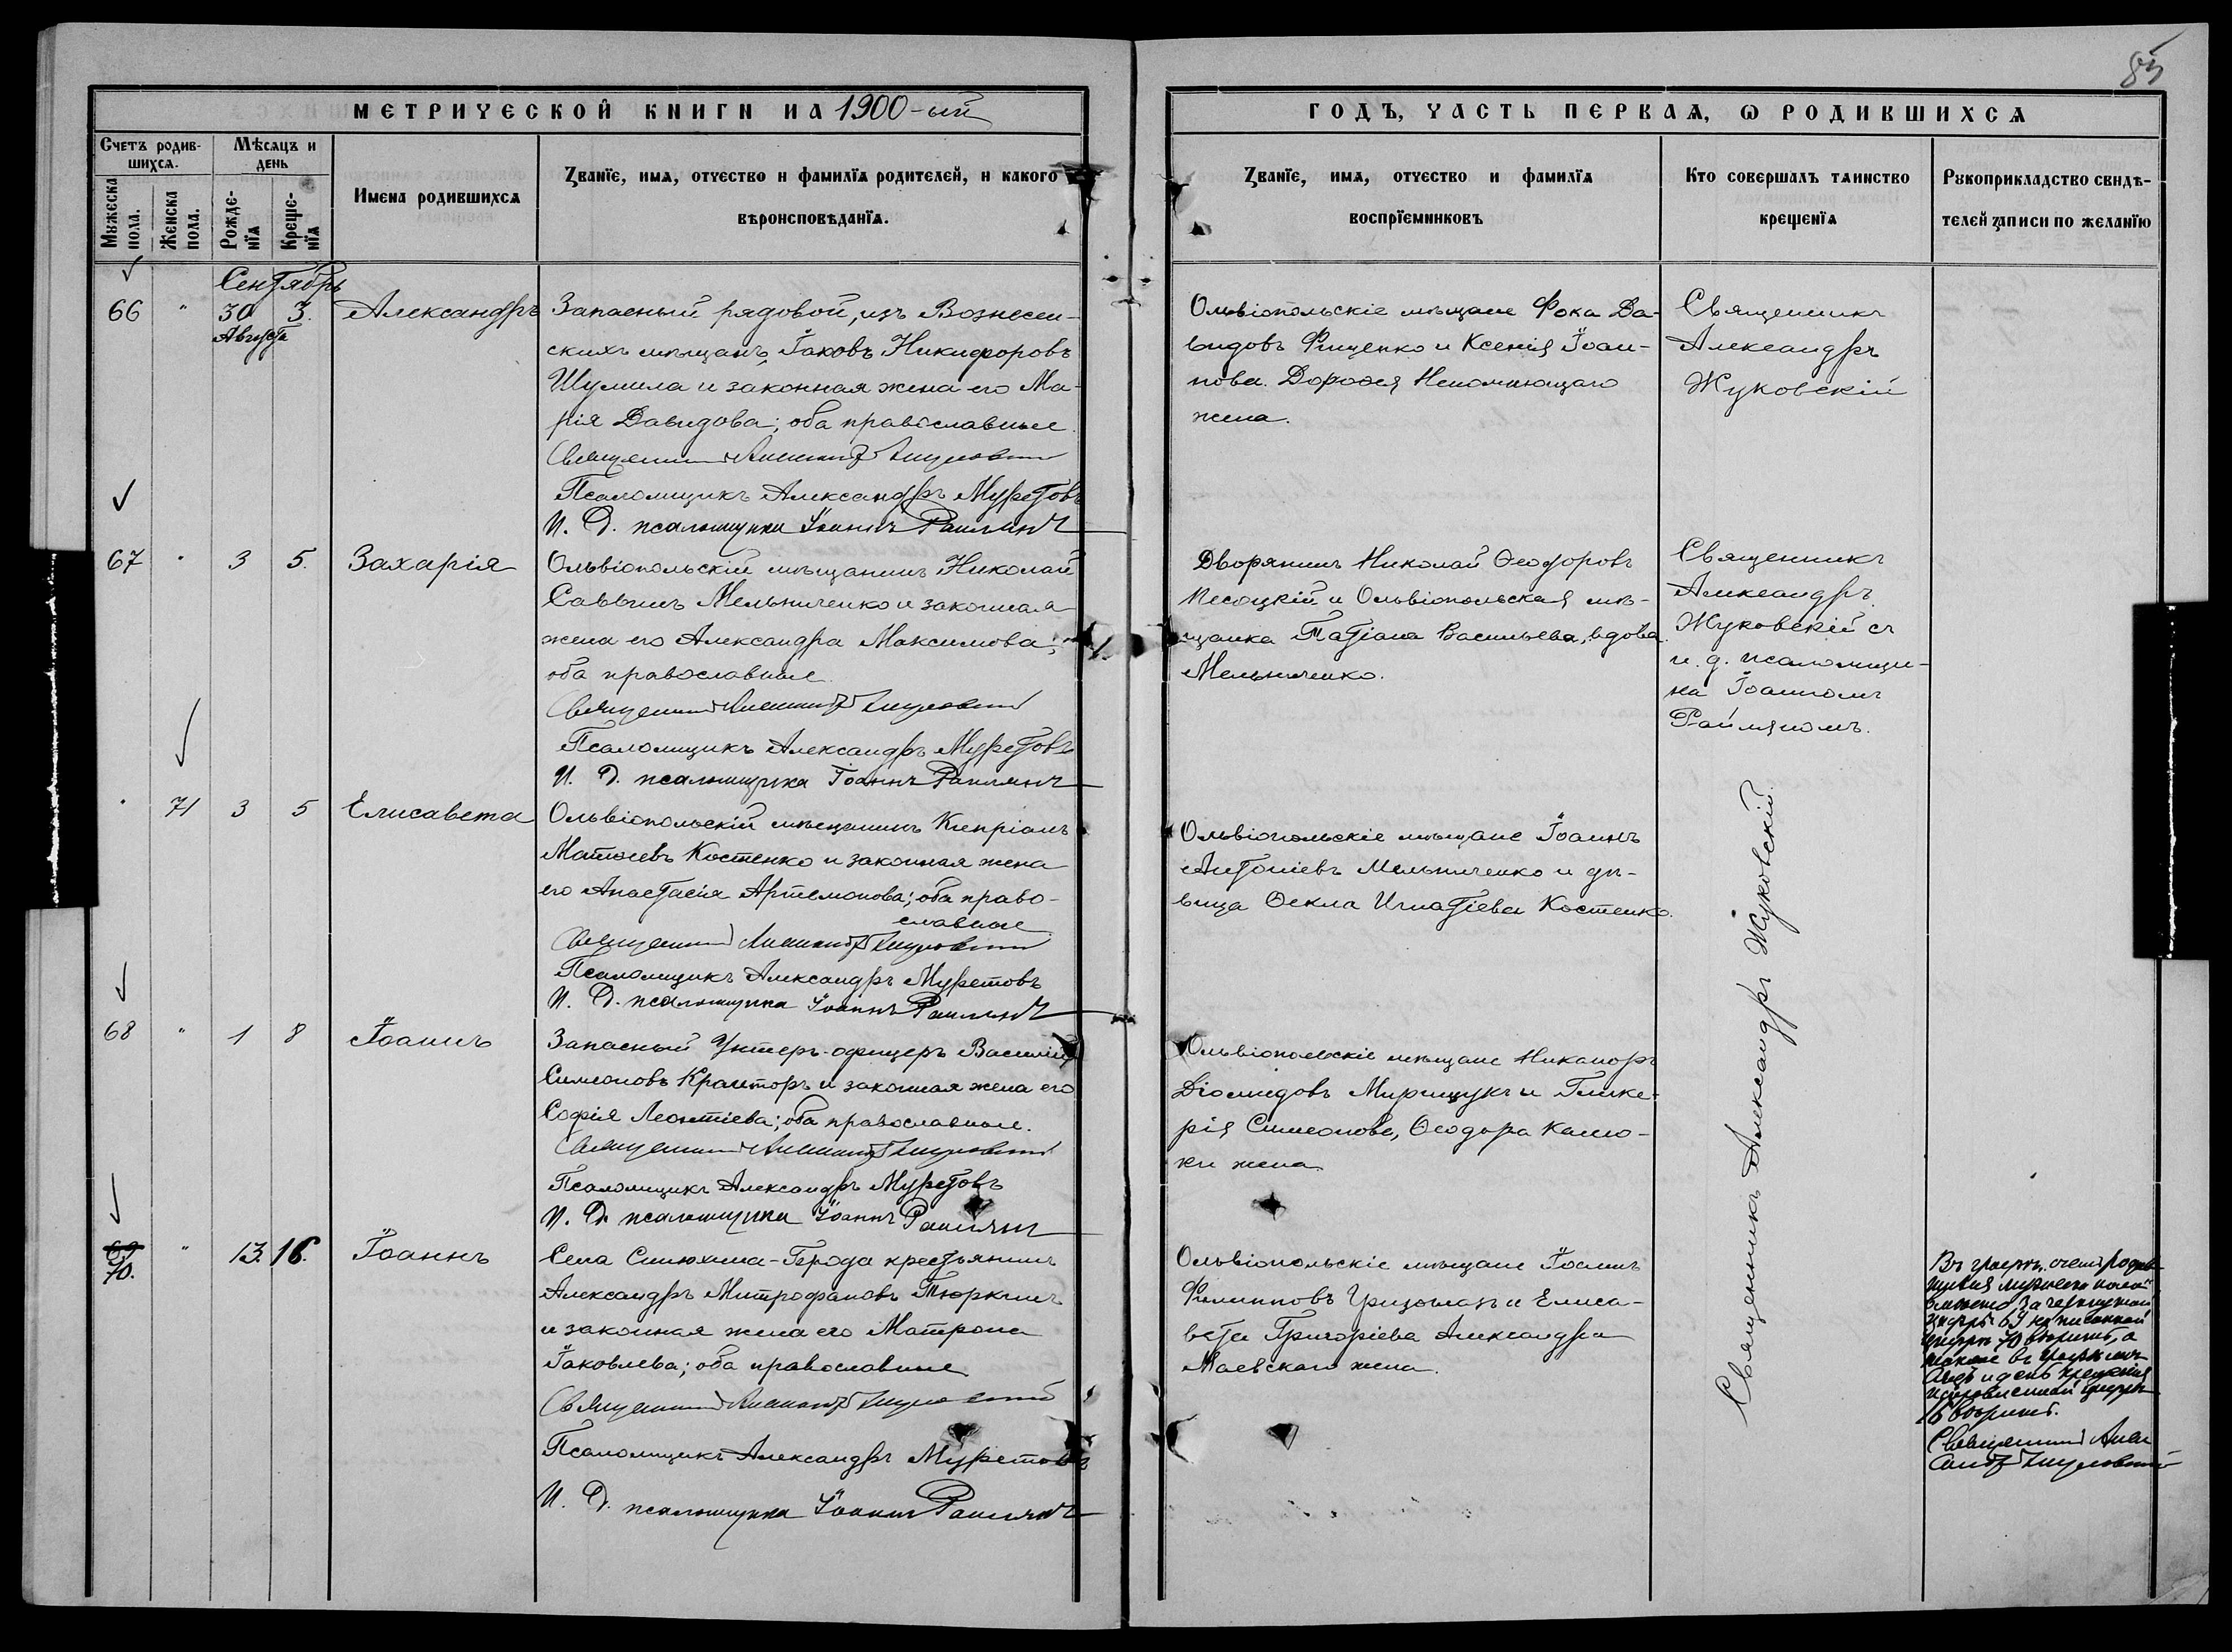 85
МЕТРИЧЕСКОЙ КНИГИ НА 1900-ый
ГОДЪ, ЧАСТЬ ПЕРВАЯ, Ѡ РОДИВШИХСЯ
Счетъ родив-
шихся.
Мѣсяцъ и
день
Мужеска
пола.
Женска
пола.
Рожде-
нїя
Креще-
нїя
Имена родившихся
Званїе, имя, отчество и фамилїя родителей, и какого
вѣроисповѣданїя.
Званїе, имя, отчество и фамилїя
воспрїемниковъ
Кто совершалъ таинство
крещенїя
Рукоприкладство свидѣ-
телей записи по желанїю
Сентябрь
66 " 30 3. Александръ
Августа
Запасный рядовой, изъ Вознесен-
скихъ мѣщанъ, Іаковъ Никифоровъ
Шумила и законная жена его Ма-
рія Давидова; оба православные.
Священникъ Александръ Жуковскій
Псаломщикъ Александръ Муретовъ
И. Д. псаломщика Іоаннъ Раилянъ
Ольвіопольскіе мѣщане Фока Да-
видовъ и Ксенія Іоан-
нова Дорофея Непомнющаго
жена.
Священникъ
Александръ
Жуковскій
67 " 3 5. Захарія
Ольвіопольскій мѣщанинъ Николай
Саввинъ Мельниченко и законная
жена его Александра Максимова;
оба православные
Священникъ Александръ Жуковскій
Псаломщикъ Александръ Муретовъ
И. Д. псаломщика Іоаннъ Раилянъ
Дворянинъ Николай Ѳеодоровъ
Песоцкій и Ольвіопольская мѣ-
щанка Татіана Васильева, вдова
Мельниченко.
Священникъ
Александръ
Жуковскій съ
и. д. псаломщи-
ка Іоанномъ
Раиляномъ.
" 71 3 5 Елисавета
Ольвіопольскій мѣщанинъ Кипріанъ
Матѳіевъ Костенко и законная жена
его Анастасія Артемонова; оба право-
славные
Священникъ Александръ Жуковскій
Псаломщикъ Александръ Муретовъ
И. Д. псаломщика Іоаннъ Раилянъ
Ольвіопольскіе мѣщане Іоаннъ
Антоніевъ Мельниченко и дѣ-
вица Ѳекла Игнатіева Костенко.
68 " 1 8 Іоаннъ
Запасный Унтеръ-офицеръ Василій
Симеоновъ Кранторъ и законная жена его
Софія Леонтіева; оба православные.
Священникъ Александръ Жуковскій
Псаломщикъ Александръ Муретовъ
И. Д. псаломщика Іоаннъ Раилянъ
Ольвіопольскіе мѣщане Никаноръ
Діомидовъ Мирищукъ и Глике-
рія Симеонова, Ѳеодора Калю-
ки жена
69
70. " 13. 16. Іоаннъ
Села Синюхина-Брода крестьянинъ
Александръ Митрофановъ Тюркинъ
и законная жена его Матрона
Іаковлева; оба православные
Священникъ Александръ Жуковскій
Псаломщикъ Александръ Муретовъ
И. Д. псаломщика Іоаннъ Раилянъ
Ольвіопольскіе мѣщане Іоаннъ
Филипповъ и Елиса-
вета Григоріева Александра
Маевскаго жена.
Священникъ Александръ Жуковскій.
Въ графѣ счетъ родив-
шихся мужеска пола
вмѣсто зачеркнутой
цифры 69 написанной
цифрѣ 70 вѣрить, а
также въ графѣ мѣ-
сяцъ и день крещенія
цифрѣ
16 вѣрить.
Священникъ Алек
сандръ Жуковскій